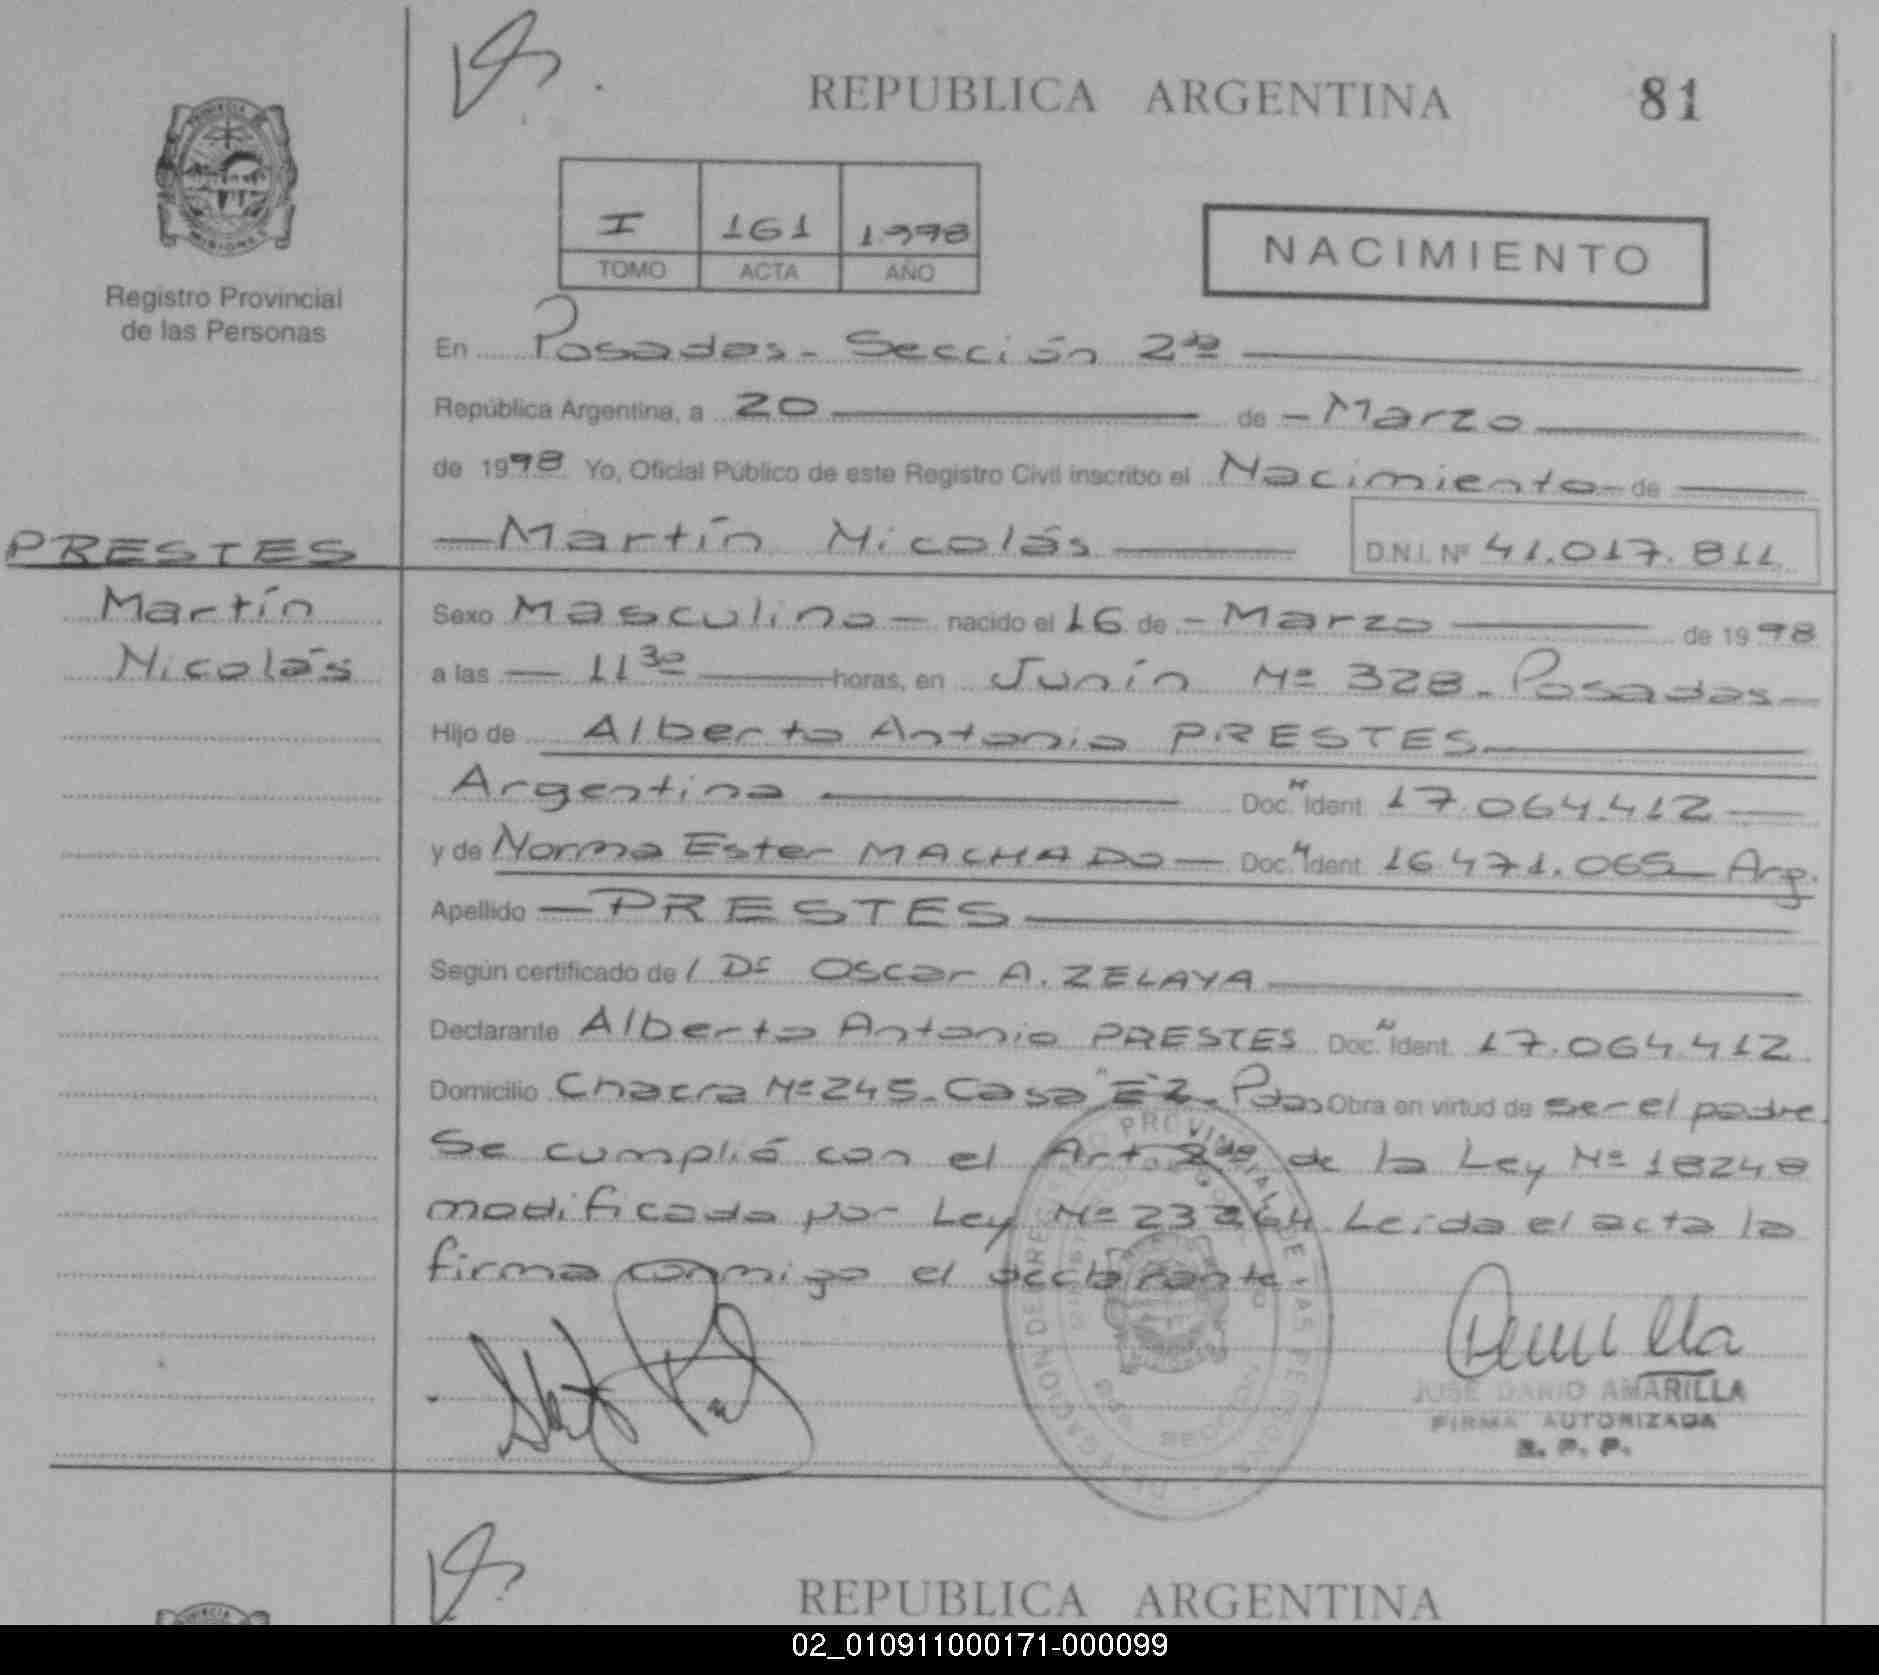 REPUBLICA ARGENTINA
81
MISIONES
Registro Provincial
de las Personas
I 161 1998
TOMO ACTA AÑO
NACIMIENTO
En Posadas - Sección 2da
República Argentina, a 20 de - Marzo
de 1998 Yo, Oficial Público de este Registro Civil inscribo el Nacimiento de
PRESTES
Martín
Nicolás
- Martín Nicolás D.N.I. Nº 41.017.811
Sexo Masculino - nacido el 16 de - Marzo de 1998
a las - 11 30 horas, en Junín Nº 328 - Posadas -
Hijo de Alberto Antonio PRESTES
Argentina Doc. Ident. 17.064.412
y de Norma Ester MACHADO - Doc. Ident. 16.471.065 - Arg.
Apellido - PRESTES
Según certificado de / Dr Oscar A. ZELAYA
Declarante Alberto Antonio PRESTES Doc. Ident. 17.064.412
Domicilio Chacra Nº 245 - Casa "E2 - Pdas Obra en virtud de ser el padre
Se cumplió con el Art. 2do de la Ley Nº 18248
modificada por Ley Nº 23264 Leida el acta la
firma conmigo el declarante.
SECCION
JOSE DARIO AMARILLA
FIRMA AUTORIZADA
R. P. P.
REPUBLICA ARGENTINA
02_010911000171-000099